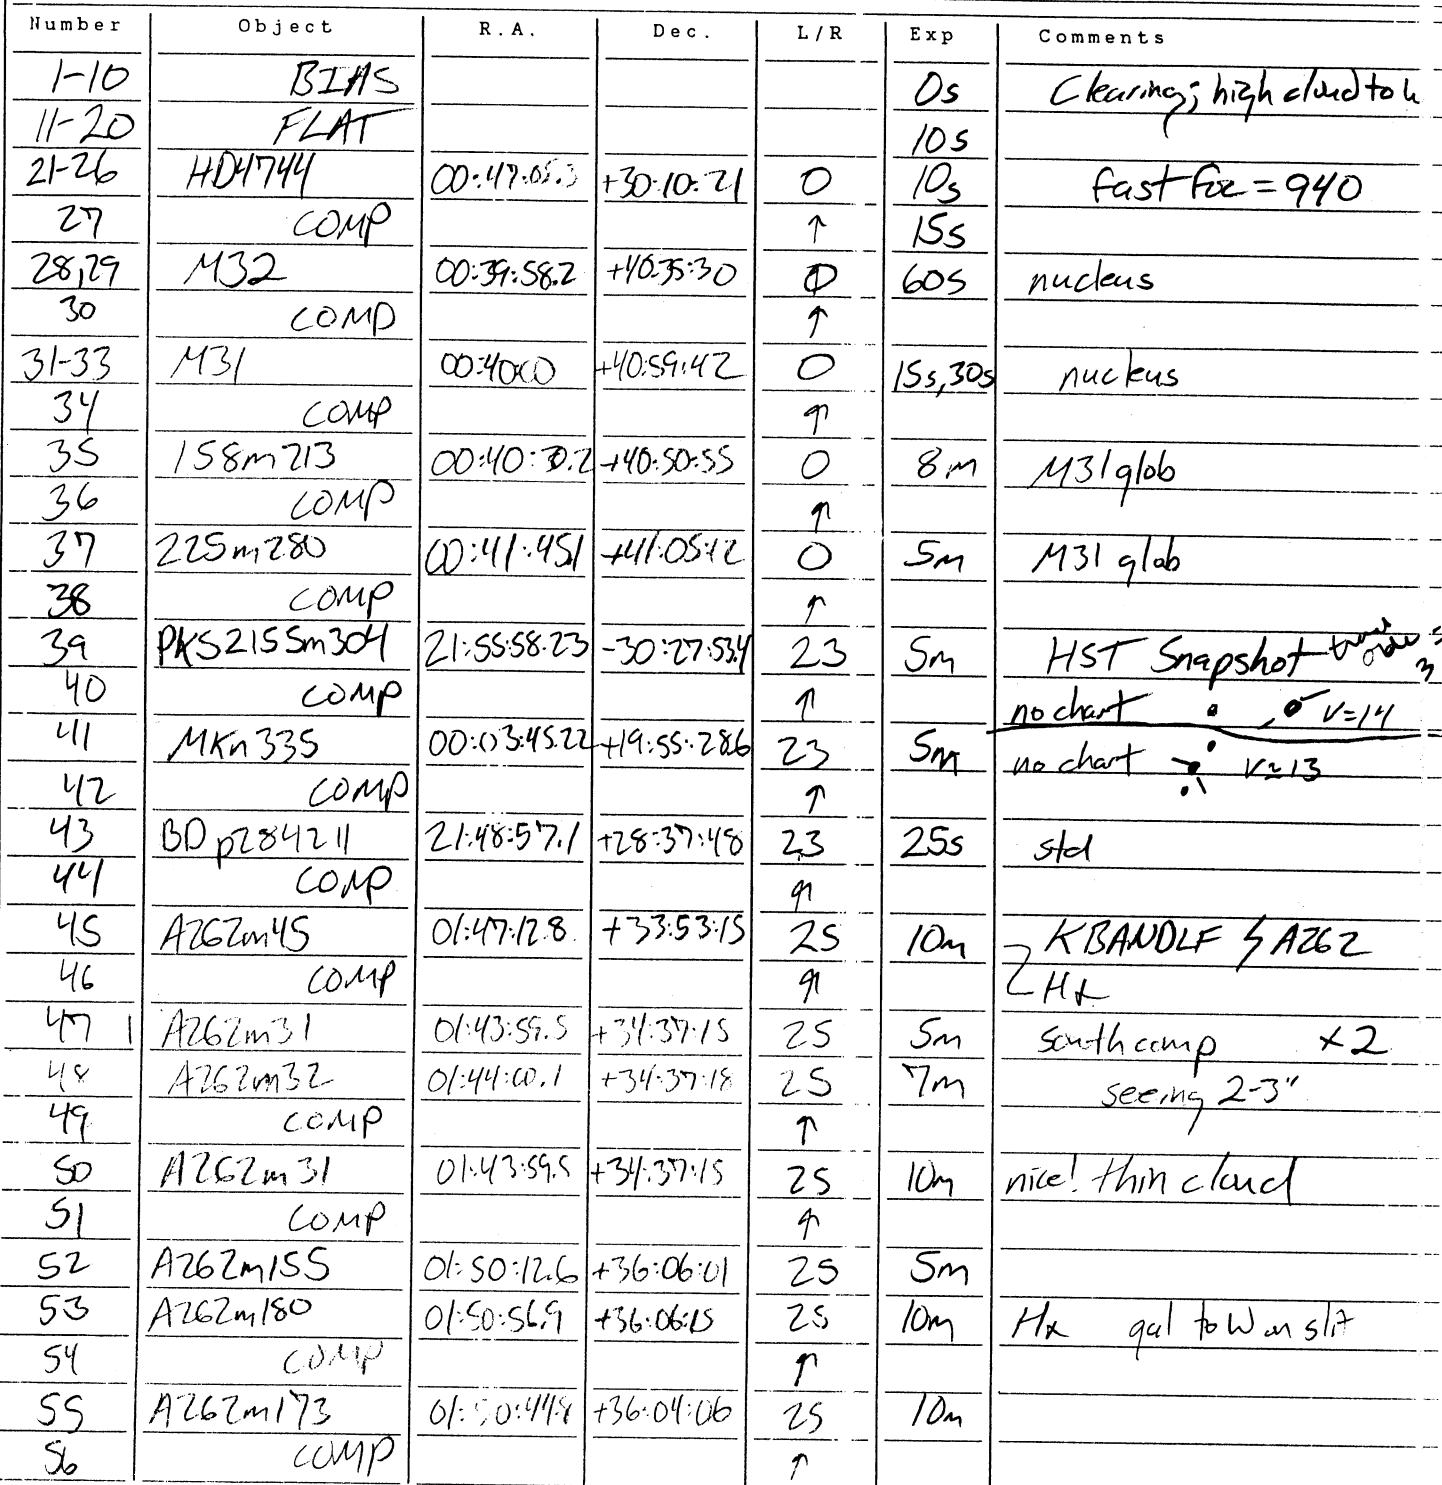 Number Object R.A. Dec. L/R Exp Comments
1-10 BIAS 0s Clearing; high cloud to
11-20 FLAT 10s
21-26 HD4744 00:47:05.3 +30:10:21 0 10s fast foc = 940
27 COMP ↑ 15s
28,29 M32 00:39:58.2 +40:35:30 0 60s nucleus
30 COMP ↑
31-33 M31 00:40:00 +40:59:42 0 15s,30s nucleus
34 COMP ↑
35 158m213 00:40:30.2 +40:50:55 0 8m M31 glob
36 COMP ↑
37 225m280 00:41:45.1 +41:05:12 0 5m M31 glob
38 COMP ↑
39 PKS2155m304 21:55:58.23 -30:27:53.4 23 5m HST Snapshot
40 COMP ↑ no chart V=14
41 MKn335 00:03:45.22 +19:55:28.6 23 5m no chart V≃13
42 COMP ↑
43 BDp284211 21:48:57.1 +28:37:48 23 25s std
44 COMP ↑
45 A262m45 01:47:12.8 +33:53:15 25 10m KBANDLF A262
46 COMP ↑ Hα
47 A262m31 01:43:59.5 +34:37:15 25 5m south comp x2
48 A262m32 01:44:00.1 +34:37:18 25 7m seeing 2-3"
49 COMP ↑
50 A262m31 01:43:59.5 +34:37:15 25 10m nice! thin cloud
51 COMP ↑
52 A262m155 01:50:12.6 +36:06:01 25 5m
53 A262m180 01:50:56.9 +36:06:15 25 10m Hα gal to W on slit
54 COMP ↑
55 A262m173 01:50:44.8 +36:04:06 25 10m
56 COMP ↑